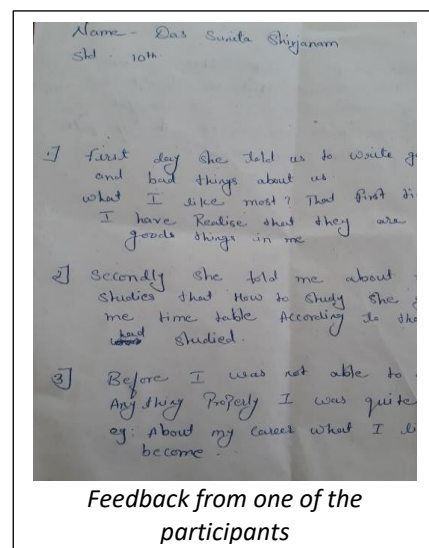 Name - Das Sunita Shivjanam
Std - 10th
1] first day she told us to write
and bad things about us
what I like most? That first
I have Realise that they are
goods things in me
2] Secondly she told me about
studies that How to study she
me time table According to
had studied.
3] Before I was not able to
Anything Properly I was quite
eg: About my career what I
become ..
Feedback from one of the
participants